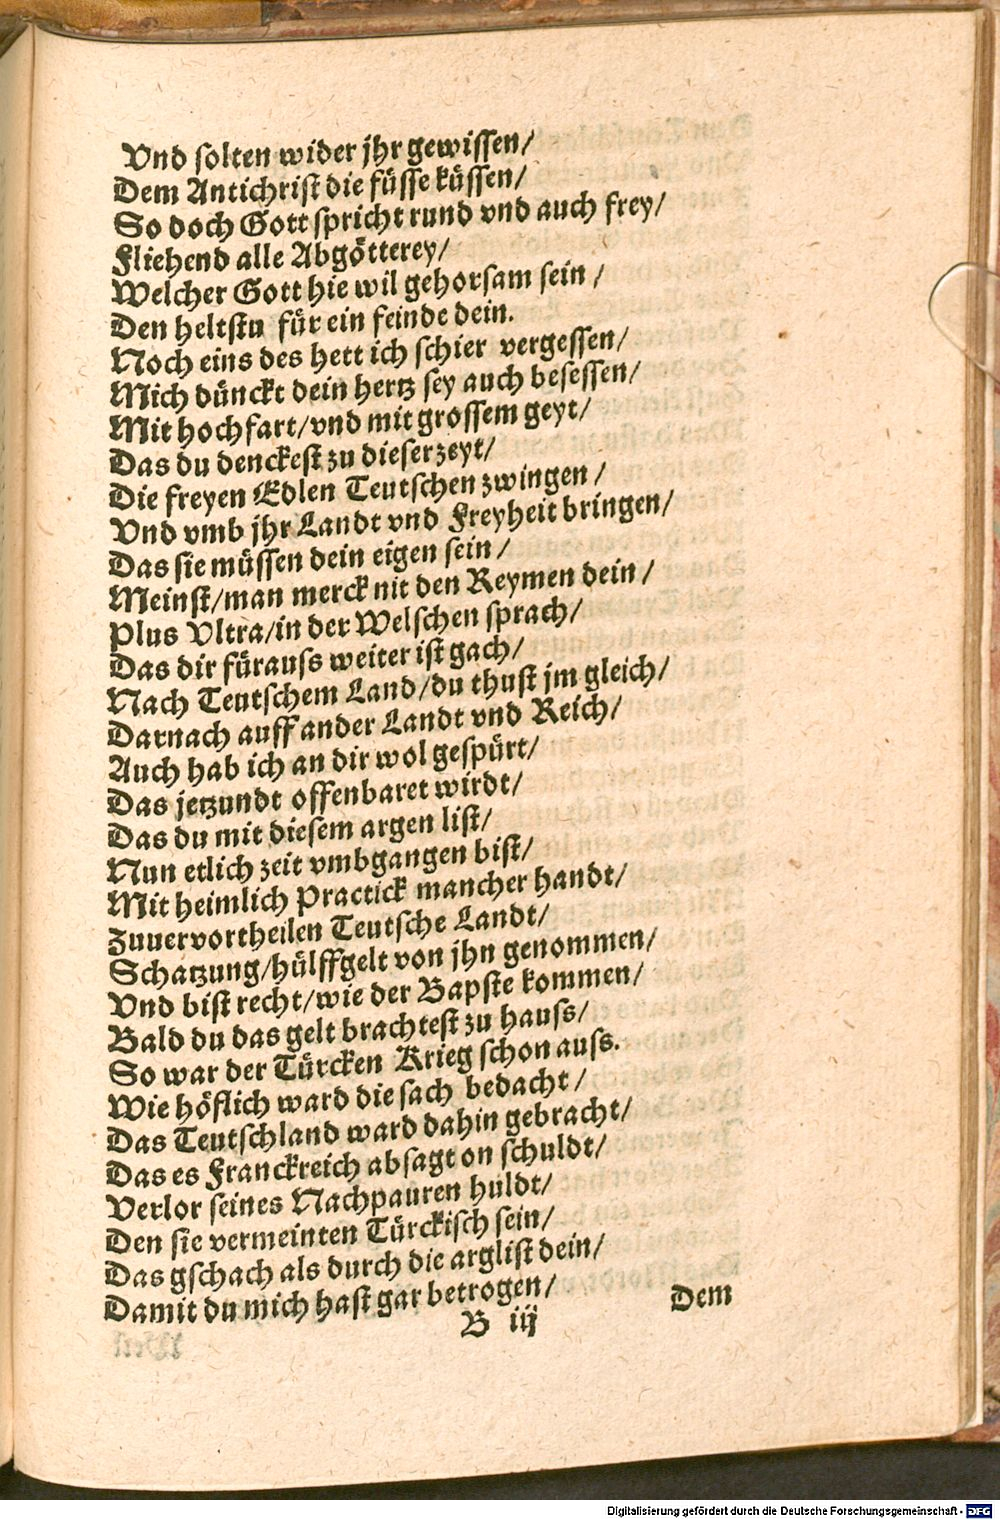 Vnd solten wider jhr gewissen/
Dem Antichrist die füsse küssen/
So doch Gott spricht rund vnd auch frey/
Fliehend alle Abgötterey/
Welcher Gott hie wil gehorsam sein /
Den heltstu für ein feinde dein.
Noch eins des hett ich schier vergessen/
Mich dünckt dein hertz sey auch besessen/
Mit hochfart/vnd mit grossem geyt/
Das du denckest zu dieser zeyt/
Die freyen Edlen Teutschen zwingen /
Vnd vmb jhr Landt vnd Freyheit bringen/
Das sie müssen dein eigen sein /
Meinst/man merck nit den Reymen dein /
Plus Vltra/in der Welschen sprach/
Das dir fürauss weiter ist gach/
Nach Teutschem Land/du thust jm gleich/
Darnach auff ander Landt vnd Reich/
Auch hab ich an dir wol gespürt/
Das jetzundt offenbaret wirdt/
Das du mit diesem argen list/
Nun etlich zeit vmbgangen bist/
Mit heimlich Practick mancher handt/
Zuuervortheilen Teutsche Landt/
Schatzung/hülffgelt von jhn genommen/
Vnd bist recht/wie der Bapste kommen/
Bald du das gelt brachtest zu hauss/
So war der Türcken Krieg schon auss.
Wie höflich ward die sach bedacht /
Das Teutschland ward dahin gebracht/
Das es Franckreich absagt on schuldt/
Verlor seines Nachpauren huldt/
Den sie vermeinten Türckisch sein/
Das gschach als durch die arglist dein/
Damit du mich hast gar betrogen/
B iij Dem
Digitalisierung gefördert durch die Deutsche Forschungsgemeinschaft - DFG